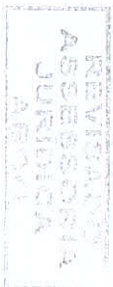 REVISADO
ASSESSORIA
JURÍDICA